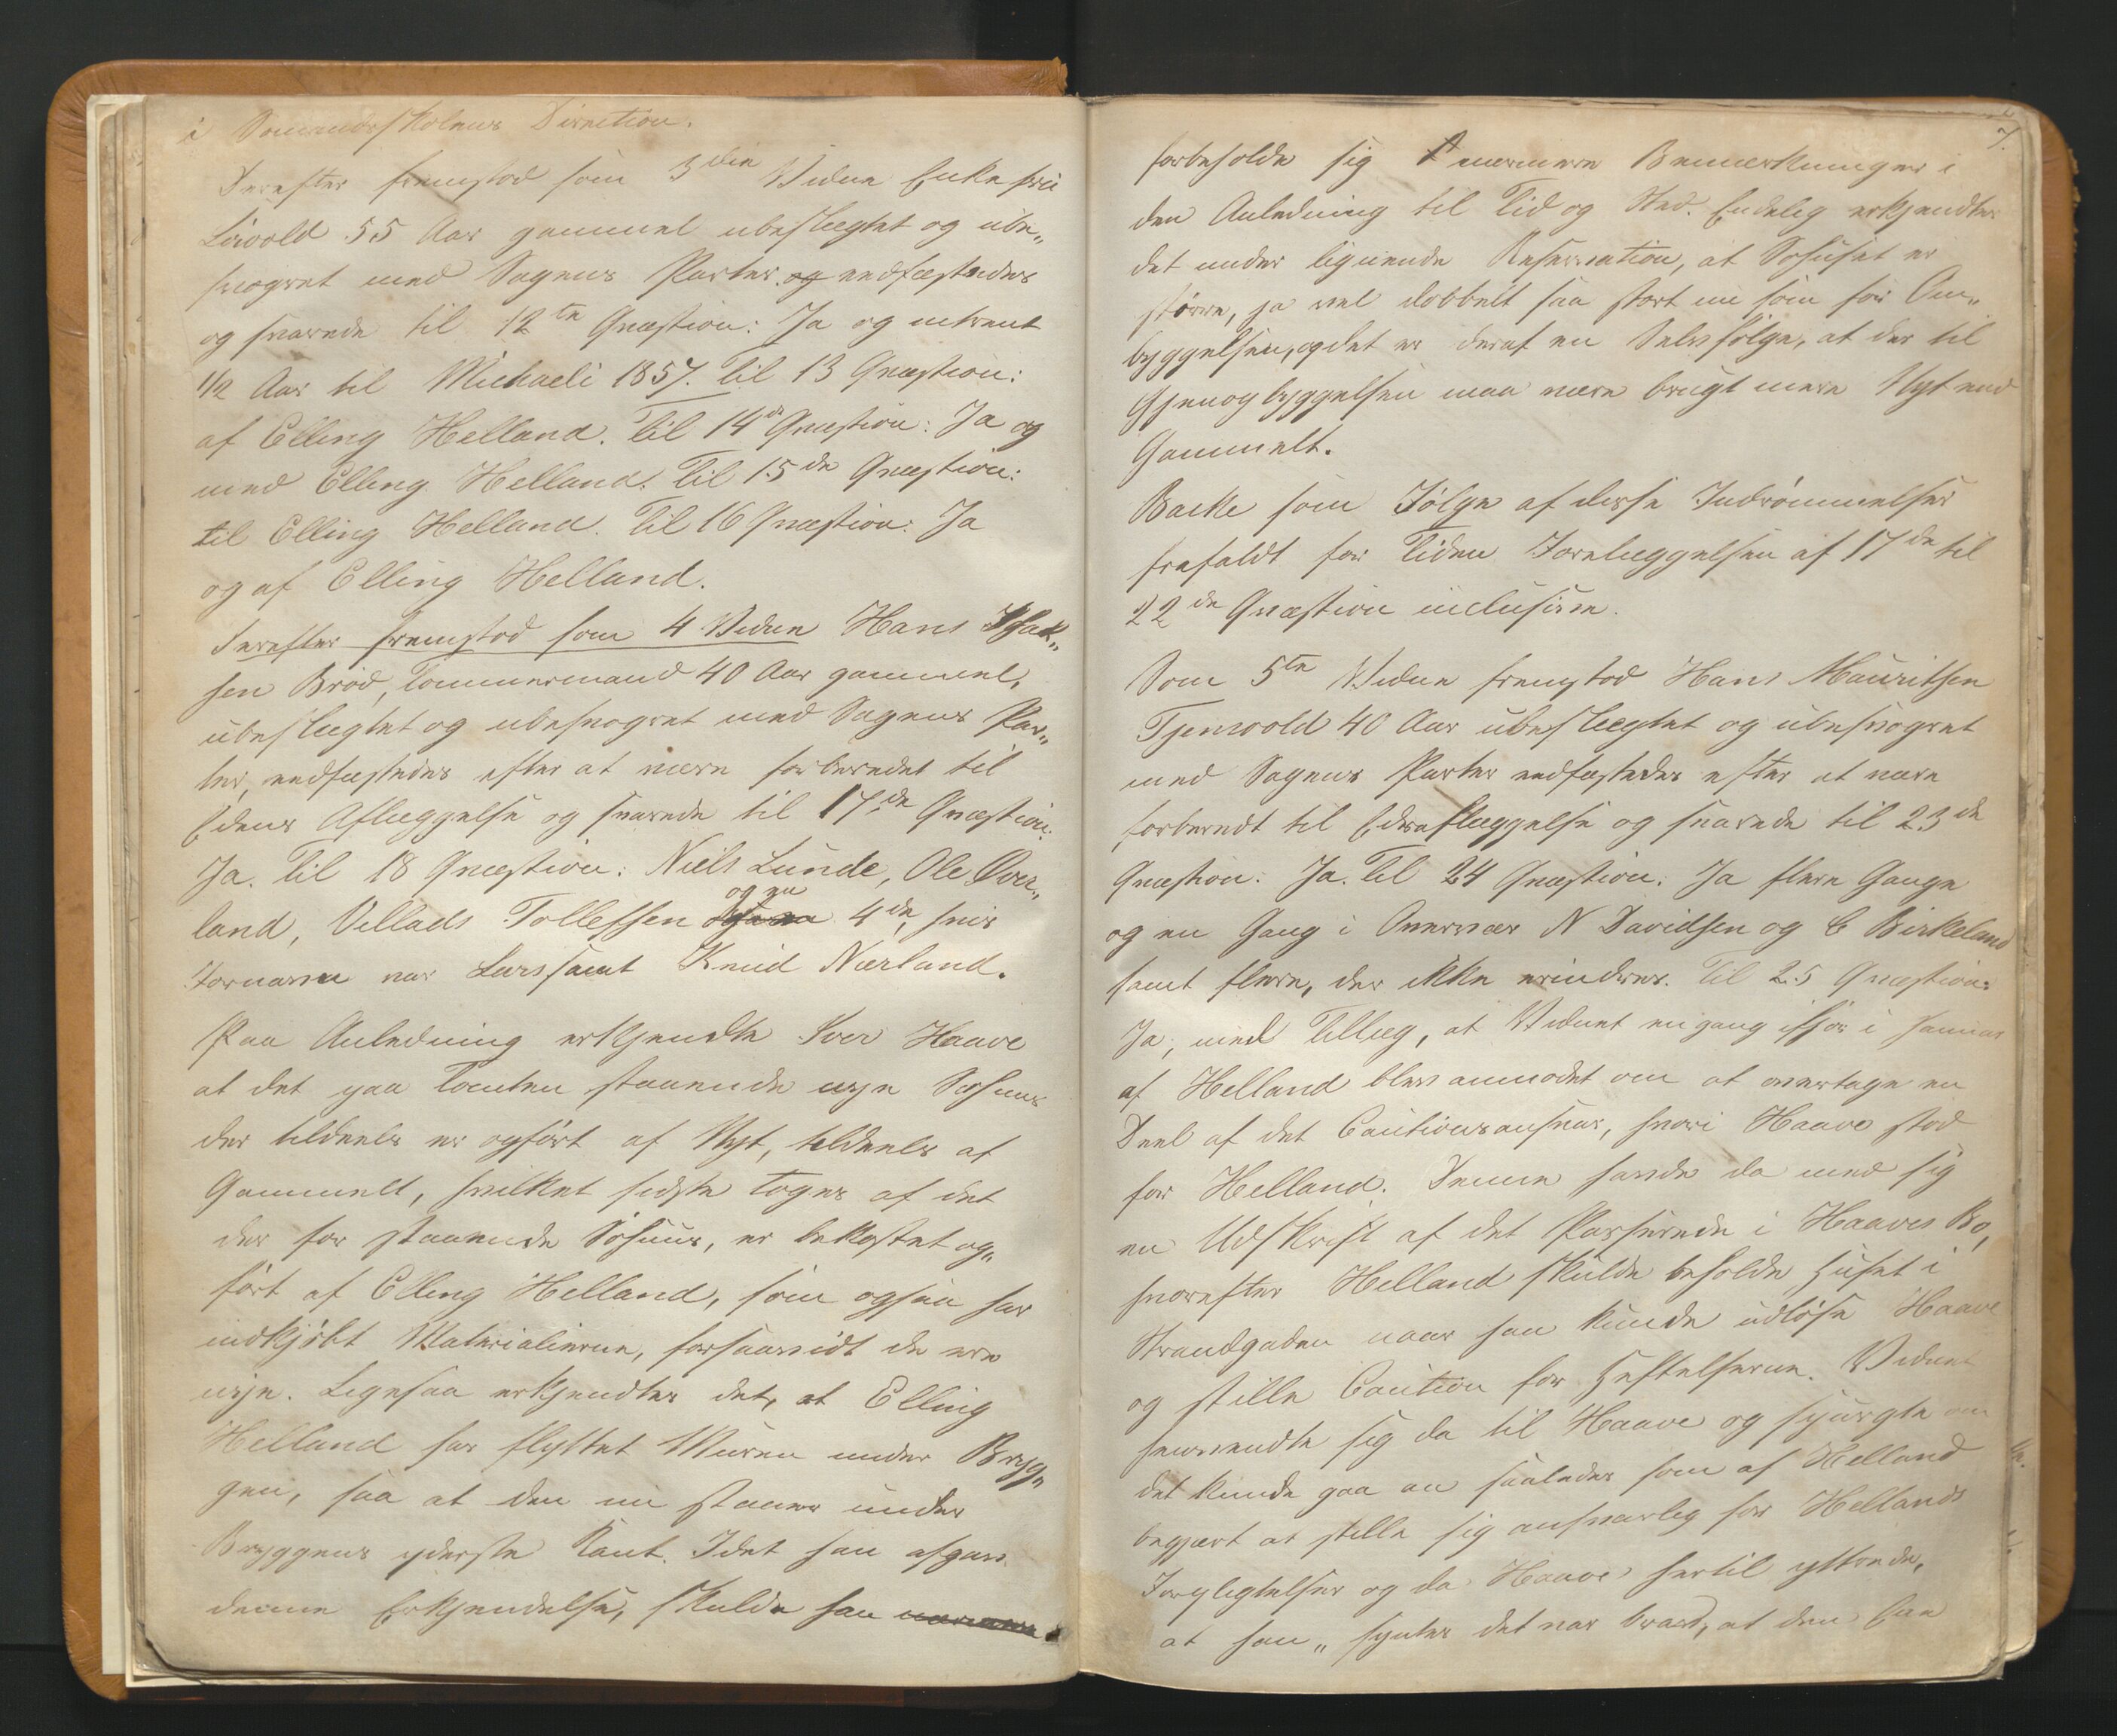 i Sømandsskolens Direction.
Derefter fremstod som 3die Vidne Enkefru
Livold 55 Aar gammel ubeslægtet og ube„
svogret med Sagens Parter og edfæstedes
og svarede til 12te Qvæstion: Ja og omtrent
1/2 Aar til Michaeli 1857. Til 13 Qvæstion:
af Elling Helland. Til 14de Qvæstion: Ja og
med Elling Helland. Til 15de Qvæstion:
til Elling Helland. Til 16 Qvæstion: Ja
og af Elling Helland.
Derefter fremstod som 4 Vidne Hans Isak„
sen Brød, Tømmermand 40 Aar gammel,
ubeslægtet og ubesvogret med Sagens Par„
ter, edfæstedes efter at være forberedet til
Edens Aflæggelse og svarede til 17de Qvæstion:
Ja. Til 18 Qvæstion: Niels Lunde, Ole Over„
land, Villads Tollefsen og en 4de, hvis
Fornavn var Lars samt Knud Nærland.
Paa Anledning erkjendte Iver Haave
at det paa Tomten staaende nye Søhuus
der tildeels er opført af Nyt, tildeels af
Gammelt, hvilket sidste toges af det
der før staaende Søhuus, er bekostet op„
ført af Elling Helland, som ogsaa har
indkjøbt Materialierne, forsaavidt de ere
nye. Ligesaa erkjendtes det, at Elling
Helland har flyttet Muren under Bryg„
gen, saa at den nu staaer under
Bryggens yderste Kant. Idet han afgav
denne Erkjendelse, skulde han nærmere
7.
forbeholde sig nærmere Bemærkninger i
den Anledning til Tid og Sted. Endelig erkjendtes
det under lignende Reservation, at Søhuset er
større, ja vel dobbelt saa stort nu som før Om„
byggelsen, og det er deraf en Selvfølge, at der til
Gjenopbyggelsen maa være brugt mere Nyt end
Gammelt.
Backe som Følge af disse Indrømmelser
frafaldt for Tiden Forelæggelsen af 17de til
22de Qvæstion inclusive.
Som 5te Vidne fremstod Hans Mauritsen
Tjensvold 40 Aar ubeslægtet og ubesvogret
med Sagens Parter edfæstedes efter at være
forberedt til Edsaflæggelse og svarede til 23de
Qvæstion: Ja. Til 24 Qvæstion: Ja flere Gange
og en Gang i Overvær N Davidsen og C Birkeland
samt flere, der ikke erindres. Til 25 Qvæstion:
Ja, med Tillæg, at Vidnet engang ifjor i Januar
af Helland blev anmodet om at overtage en
Deel af det Cautionsansvar, hvori Haave stod
for Helland. Denne havde da med sig
en Udskrift af det Passerede i Haaves Bo,
hvorefter Helland skulde beholde Huset i
Strandgaden naar han kunde udløse Haave
og stille Caution for Heftelserne. Vidnet
henvendte sig da til Haave og spurgte om
det kunde gaa an saaledes som af Helland
begjært at stille sig ansvarlig for Hellands
Forpligtelser og da Haave hertil yttrede,
at han „syntes det var bravt, at den